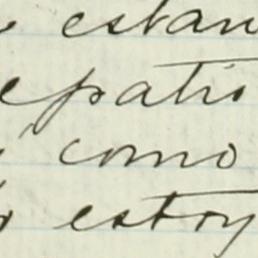 estan
epatio
como
estoy